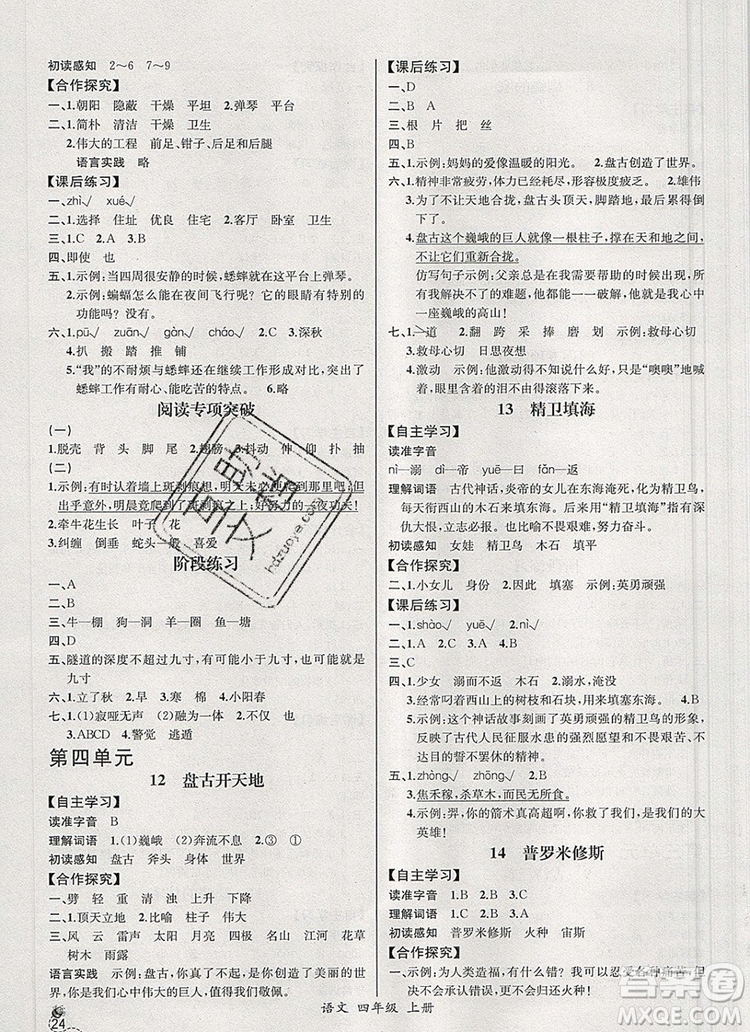 初读感知 2～6 7～9
【合作探究】
一、1.朝阳 隐蔽 干燥 平坦 2.弹琴 平台
二、1.简朴 清洁 干燥 卫生
2.伟大的工程 前足、钳子、后足和后腿
语言实践 略
【课后练习】
一、zhì√ xué√
二、1.选择 住址 优良 住宅 2.客厅 卧室 卫生
三、1.C 2.A 3.A 4.B
四、即使 也
五、1.示例:当四周很安静的时候,蟋蟀就在这平台上弹琴。
2.示例:蝙蝠怎么能在夜间飞行呢?它的眼睛有特别的
功能吗?没有。
六、1.pū√ zào√ gàn√ cháo√ 2.示例:深秋
4.扒 搬 踏 推 铺
5.“我”的不耐烦与蟋蟀还在继续工作作对比,突出了
蟋蟀工作有耐心、能吃苦的特点。 6.略
阅读专项突破
(一)
1.脱壳 背 头 脚 尾 2.翅膀 3.抖动 伸 仰 扑 抽
(二)
1.示例:有时认着墙上斑剥痕想,明天未必便爬到那里吧!但
出乎意外,明晨竟爬到了斑剥痕之上;好努力的一夜功夫!
2.牵牛花生长 叶子 花
3.纠缠 倒垂 蛇头一般 喜爱
阶段练习
一、A
二、A
三、牛—棚 狗—洞 羊—圈 兔—窟
四、D
五、隧道的深度不超过九寸,有可能小于九寸,最大就是
九寸
六、1.立了秋 2.早 3.寒 棉 4.小阳春
七、1.(1)寂哑无声 (2)融为一体 2.不仅 也
3.ABCD 4.警觉 逃遁
第四单元
12 盘古开天地
【自主学习】
读准字音 B
理解词语 1.(1)巍峨 (2)奔流不息 2.③ ①
初读感知 盘古 斧头 身体 世界
【合作探究】
一、劈 轻 重 清 浊 上升 下降
二、1.顶天立地 2.比喻 柱子 伟大
三、风 云 雷声 太阳 月亮 江河 花草
树木 雨露
语言实践 示例:盘古,你真了不起!是你创造了美丽的世
界,我们心中伟大的巨人!
【课后练习】
一、D
二、B A
三、根 片 把 丝
四、B
五、1.示例:妈妈的爱像温暖的阳光。 2.盘古创造了世界。
六、1.精神非常疲劳,体力已经耗尽,形容极度疲乏。 2.雄伟
3.为了不让天地合拢,盘古头顶天,脚踏地,累得
倒下了。
4.盘古这个巍峨的巨人就像一根柱子,撑在天和地之间,
不让它们重新合拢。
仿写句子示例:父亲总是在我需要帮助的时候帮我
解决不了的难题,他伟岸的身影就像屹立在我心中
一座巍峨的高山!
七、1.一道 2.翻 跨 采 捧 磨 划 示例:救母心切
3.救母心切 日思夜想
4.激动 示例:他激动得不知说什么好,只是“噢噢”地喊
着,激动的泪不由得滚落下来。
13 精卫填海
【自主学习】
读准字音
nì—溺 dì—帝 yuē—曰 fǎn—返
理解词语 古代神话,炎帝的女儿在东海淹死,化为精卫鸟,
每天衔西山的木石来填东海。后来用“精卫填海”比喻有深
仇大恨,立志必报。也比喻不畏艰难,努力奋斗。
初读感知 女娃 精卫鸟 木石 填平
【合作探究】
一、1.小女儿 身份 2.因此 填塞 示例:英勇顽强
【课后练习】
一、1.shào√ yuē√ 2.nì√
二、1.A 2.B 3.A
三、C
四、1.少女 溺而不返 常衔西山之木石
2.她经常叼着西山上的树枝和石块,用来填塞东海。
3.示例:这个神话故事刻画了英勇顽强的精卫鸟的形象,
反映了古代劳动人民探索自然、征服自然、改造自然的
强烈愿望和不达目的誓不罢休的精神。 4.A
五、1.zhòng√ zhōng√ 2.B
3.焦禾稼,杀草木,而民无所食。
4.示例:羿,你的箭术真高超啊!你救了我们,是我们的大
英雄!
14 普罗米修斯
【自主学习】
读准字音 1.B 2.A 3.B
理解词语 1.C 2.B 3.B
初读感知 普罗米修斯 火种 宙斯
【合作探究】
一、示例:为人类造福,有什么错?我可以忍受各种痛苦,但
决不会承认错误,更不会归还火种!
语文 四年级 上册
24
百学帮文
hdzuoye.com